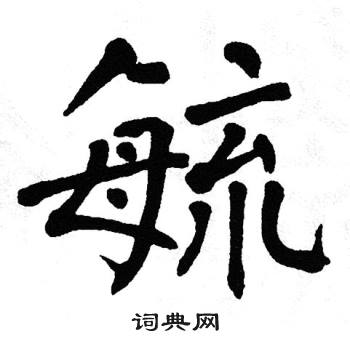 毓
词典网